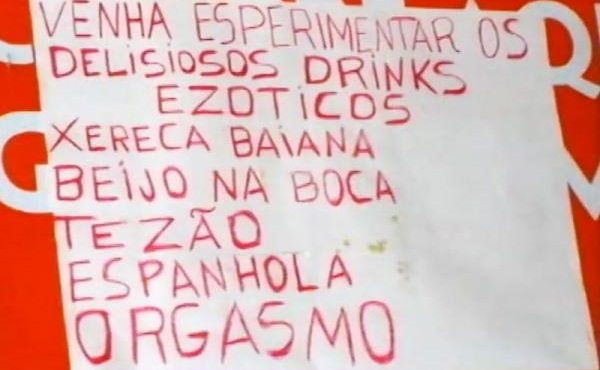 VENHA ESPERIMENTAR OS
DELISIOSOS DRINKS
EZOTICOS
XERECA BAIANA
BEIJO NA BOCA
TEZÃO
ESPANHOLA
ORGASMO